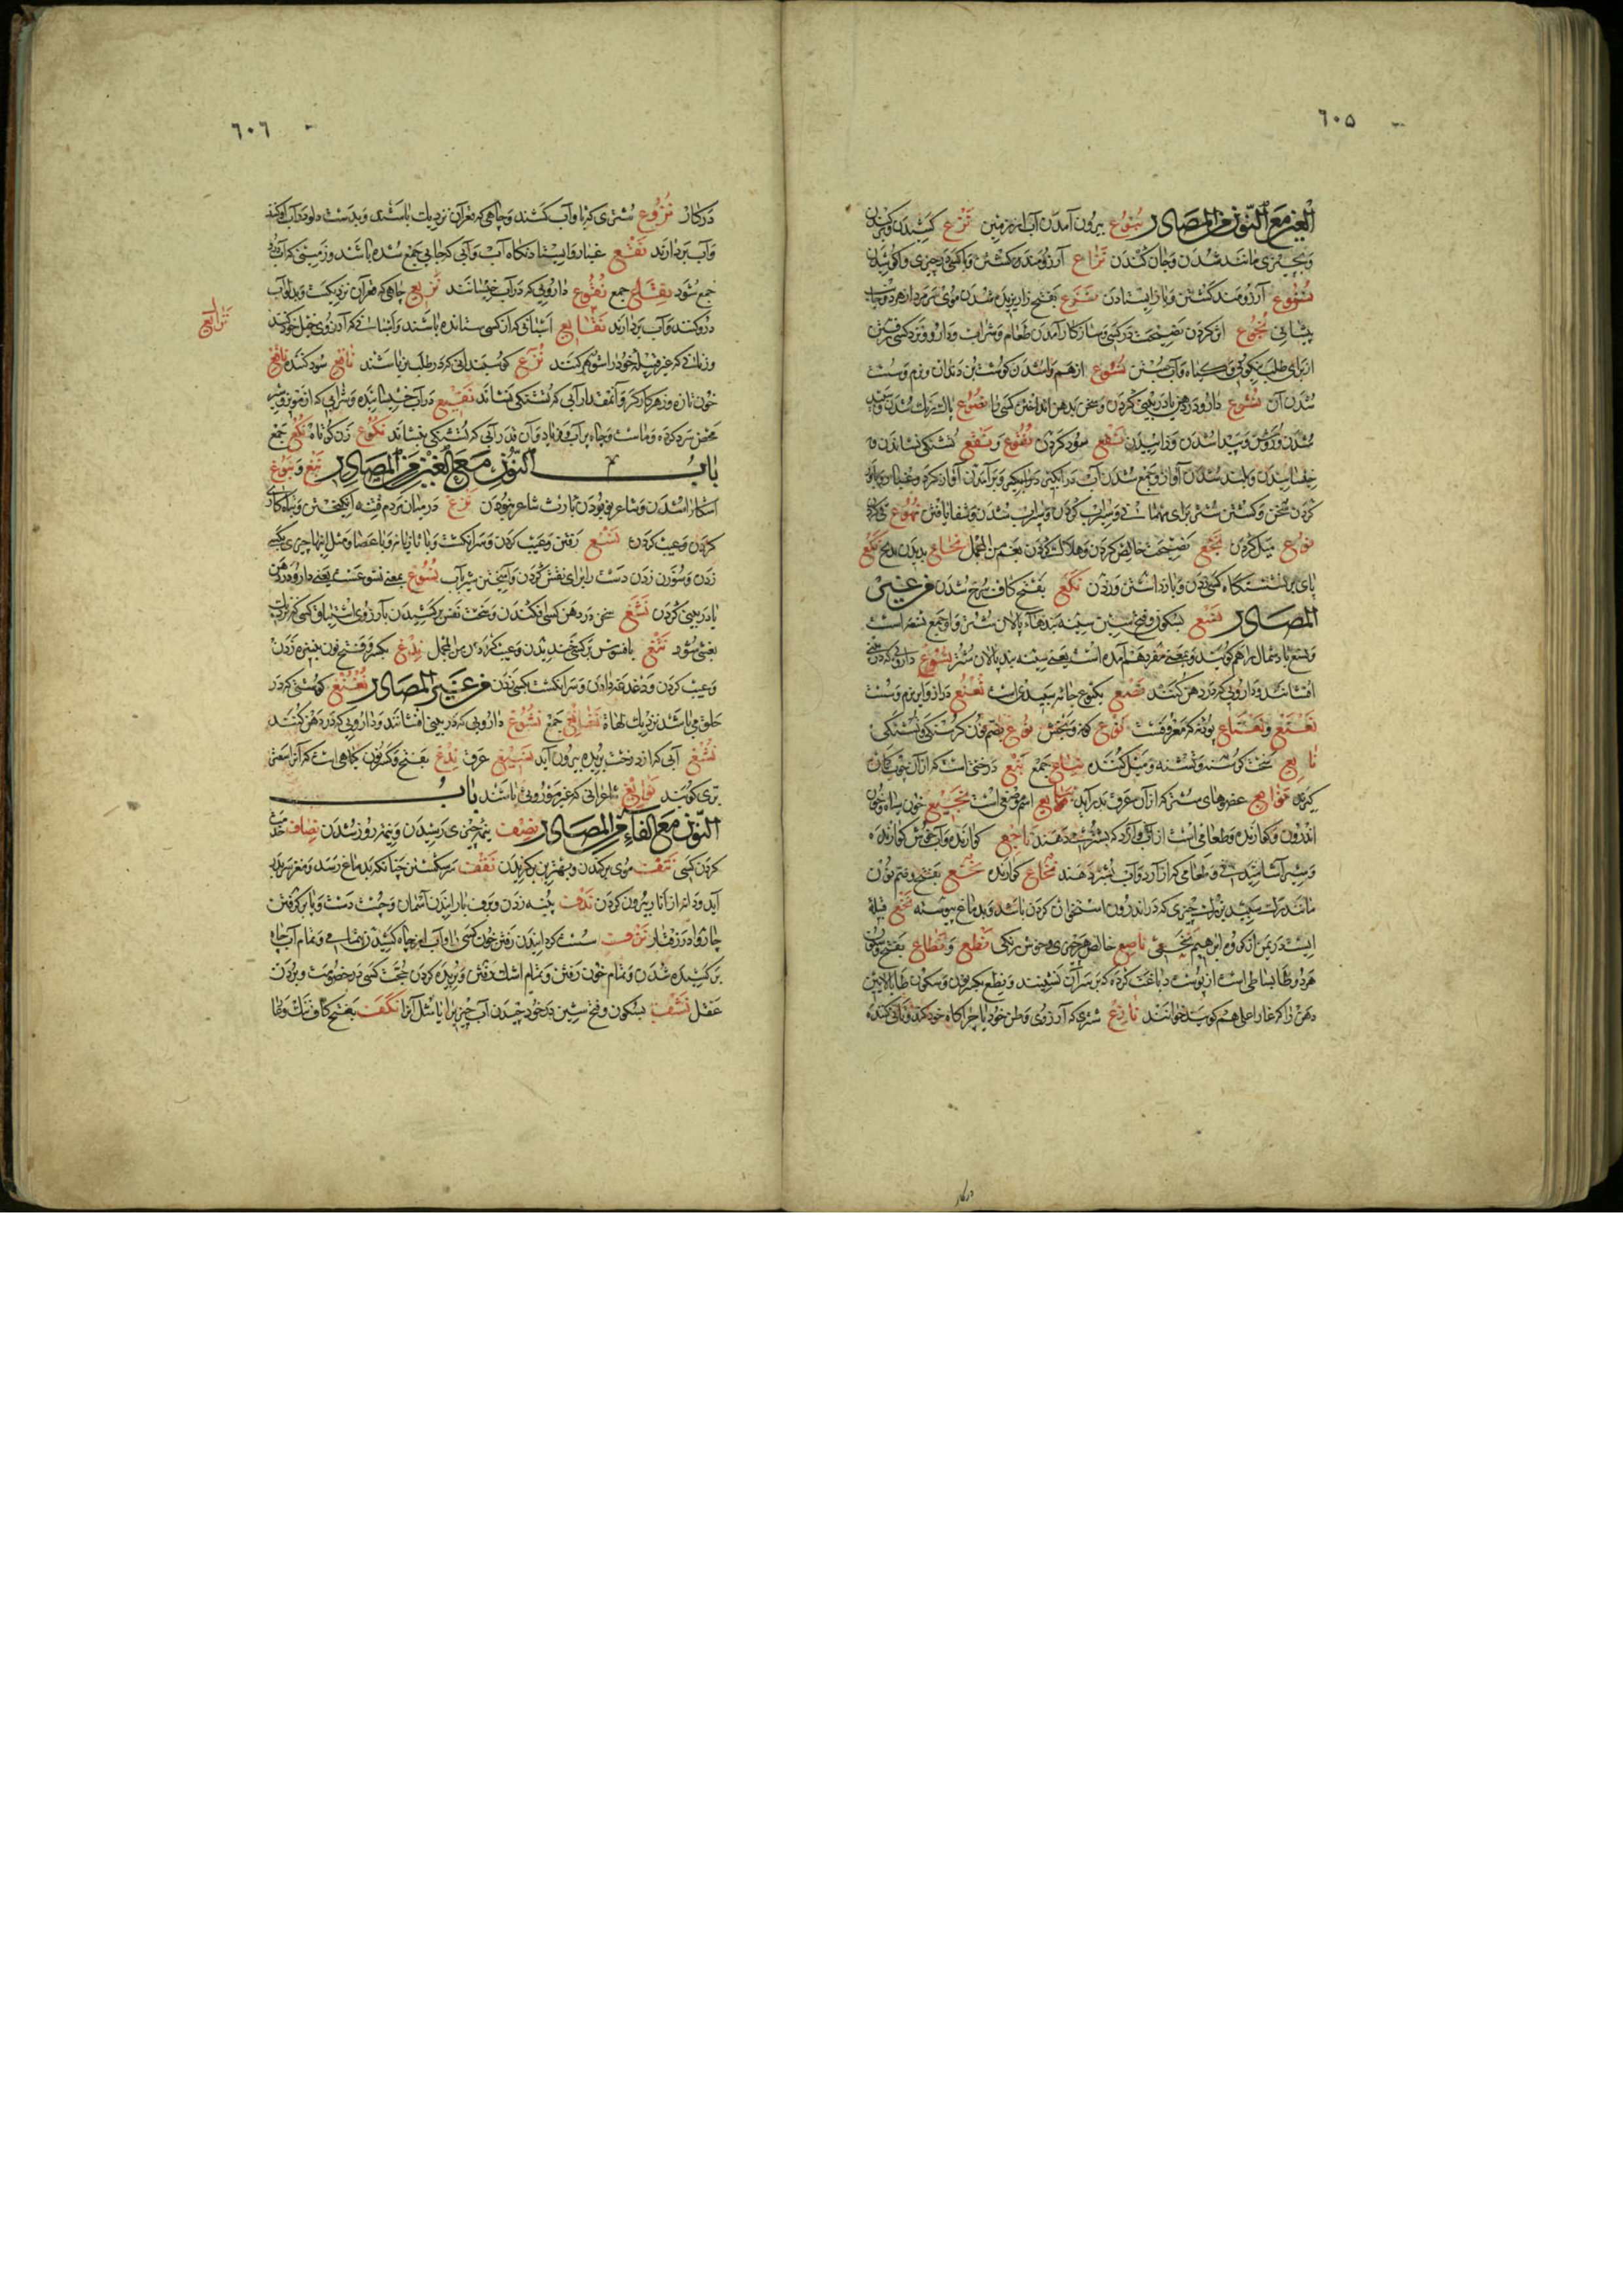 ٦٠٥
العین مع النون من المصادر نبوع بیرون آمدن آب از زمین نزع کشیدن و برکندن
و بچیزی مانند شدن و جان کندن نزاع آرزومند کشتن و با کسی در چیزی واکوشیدن
نزوع آرزومند کشتن و باز ایستادن نزع بفتح زا بریده شدن موی سر مرد از هر دو جانب
پیشانی نجوع اثر کردن نصیحت در کسی و سازکار آمدن طعام و شراب و دارو و نزد کسی رفتن
از برای طلب نیکوئی و کیاه و آب جستن نسوع از هم واشدن کوشت بن دندان و نرم و سست
شدن آن نشوع دارو در دهن یا در بینی کردن و سخن بدهن انداختن کسی را نصوع پاک شدن و سپید
شدن و روشن و پیدا شدن و زاییدن نفع سود کردن نقوع و نقع تشنکی نشاندن و
خیسانیدن و بلند شدن آواز و جمع شدن آب در آبکیر و برآمدن آواز
کردن سخن و کشتن شتر برای مهمانی و سیراب کردن و سیراب شدن و شفا یافتن
نوع میل کردن نخع نصیحت خالص کردن و هلاک کردن بغم من المجمل نخاع
پای بر نشستنکاه کسی زدن و بازداشتن و زدن نکع بفتح کاف سرخ شدن من غیر
المصادر نسع بسکون و فتح سین سینه بندهاء پالان شتر و او جمع نسعه است
و نسع باد شمال را هم کویند و بمعنی مفرد هم آمده است یعنی سینه بند پالان شتر نشوع داروئی که در بینی
افشانند و داروئی که در دهن کنند نصع یکنوع جامه سپید است نعنع دراز و نرم و سست
نعنع و نعناع پودنه که معروفست نوع کونه و بخش نوع بضم نون کرسنکی و تشنکی
نایع سخت کرسنه و تشنه و میل کننده نیاع جمع نبع درختی است که از آن چوب کمان
کیرند نوابع عضوهای شتر که از آن عرق بدرآید ینابع اسم موضعی است نجیع خون سیاه و خون
اندرون و کوارنده و طعامی است از آب و آرد که بشتر دهند ناجع کوارنده و آب خوش کوارنده
نخاع کوارنده نخع بفتح و ضم نون
مانند رک سپید بزرک چیزی که در اندرون استخوان کردن باشد و بدماغ پیوسته نخع قبیلهٔ
ایست در یمن از آن کروه ابراهیم نخعی ناصع خالص هر چیزی و خوش رنک نطع و نطاع بفتح و سکون
هر دو طا بساطی است از پوست دباغت کرده که بر سر آن نشینند و نطع بکسر نون و سکون طا بالایین
دهن را که غار اعلی هم کویند خوانند نازع شتری که آرزوی وطن خود یا چراکاه خود کند و نافی کننده
درکار
٦٠٦
درکار نزوع شتری که با و آب کشند و چاهی که قعر آن نزدیک باشد و بدست دلو در آب او کنند
و آب بردارند نقع غبار و ایستادنکاه آب و آبی که جایی جمع شده باشد و زمینی که آب درو
جمع شود نقاع جمع نقوع داروئی که در آب خیسانند نزیع چاهی که قعر آن نزدیکست و بدلو آب
دروکنند و آب بردارند نقایع اسبانی که از کسی ستانده باشند و اسبانی که آرزوی نخل خود کنند
نزایع
و زنانی که غیر قبیلهٔ خود را شوهر کنند نزع کوسبندانی که در طلب نر باشند نافع سود کننده ناقع
خون تازه و زهر کارکر و آنمقدار آبی که تشنکی نشاند نقیع در آب خیسانیده و شرابی که از مویز و شیر
محض سرد کرده و ماست و چاه پر آب و فریاد و آن قدر آبی که تشنکی بنشاند نکوع زن کوتاه نکع جمع
باب النون مع الغین من المصادر نبغ و نبوغ
آشکارا شدن و شاعر بودن با ارث شاعر نبودن نزغ در میان مردم فتنه انکیختن و تباه کاری
کردن و عیب کردن نسغ رفتن و عیب کردن و سر انکشت و یا تازیانه و یا عصا و مثل اینها چیزی بکسی
زدن و سوزن زدن دست را برای نقش کردن و آمیختن شیر بآب نشوغ بمعنی نشوع است یعنی دارو در دهن
یا در بینی کردن نشغ سخن در دهن کسی افکندن و سخت نفس برکشیدن بآرزوی اشتیاق کسی که نزدیک
بغشی شود نتغ بافسوس بر کسی خندیدن و عیب کردن من المجمل ندغ بکسر و فتح نون بنیزه زدن
و عیب کردن و دغدغه دادن و سر انکشت بکسی زدن من غیر المصادر نغنغ کوشتی که در
حلق می باشد نزدیک لهاة نغانغ جمع نشوغ داروئی که در بینی افشانند و داروئی که در دهن کنند
نسغ آبی که از درخت بریده بیرون آید نسیغ عرق ندغ بفتح و کسر نون کیاهی است که آنرا سعتر
بری کویند نوابغ شاعرانی که غیر موروثی باشند باب
النون مع الفاء من المصادر نصف نیمهٔ چیزی رسیدن و نیمه روز شدن نصاف خدمت
کردن کسی نتف موی برکندن و بهترین برکزیدن نقف سر شکستن چنانکه بدماغ رسد و مغز سر بدر
آید و دانه از انار بیرون کردن ندف پنبه زدن و برف بارانیدن آسمان و جست دست و پا برکرفتن
چاروا در رفتار نزف سست کردانیدن رفتن خون کسی را و آب از چاه کشیدن بتمامی و تمام آب چاه
برکشیده شدن و تمام خون رفتن و تمام اشک رفتن و بریده کردن حجت کسی در خصومت و بردن
عقل نشف بسکون و فتح شین در خود چیدن آب چیزی را یا مثل آنرا نکف بفتح کاف ننک و عار